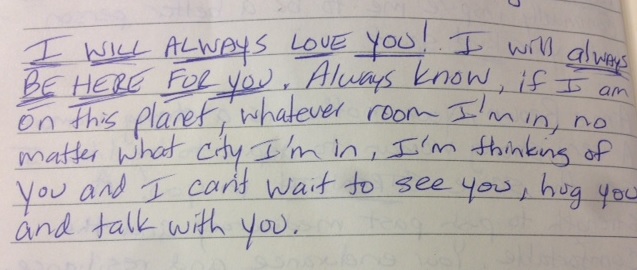 I WILL ALWAYS LOVE YOU! I will always
BE HERE FOR YOU. Always know, if I am
on this planet, whatever room I'm in, no
matter what city I'm in, I'm thinking of
you and I can't wait to see you, hug you
and talk with you.